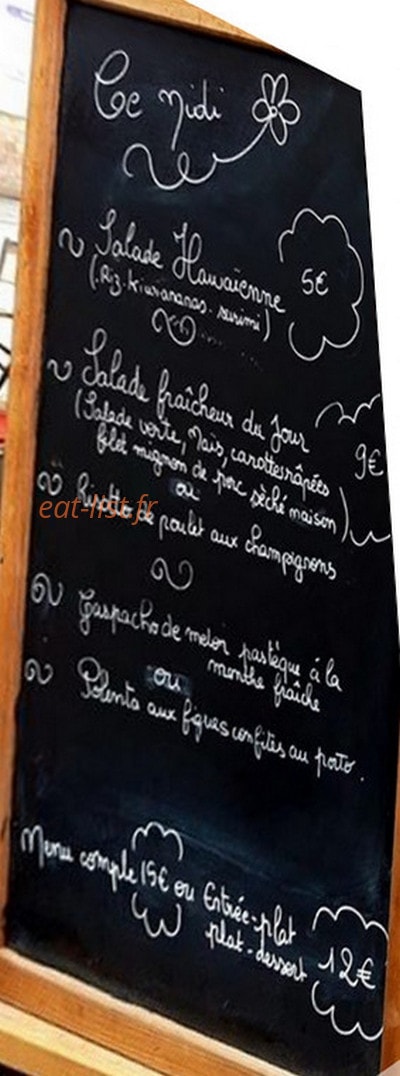 Ce midi
Salade Hawaïenne
(. Riz. kiwi. ananas. surimi)
5€
Salade fraîcheur du Jour
(Salade verte, Maïs, carottes râpées
filet mignon de porc séché maison)
9€
ou
Risotto de poulet aux champignons
eat-list.fr
Gaspacho de melon pastèque à la
menthe fraîche
ou
Polenta aux figues confites au porto.
Menu comple 15€ ou Entrée-plat
plat-dessert
12€